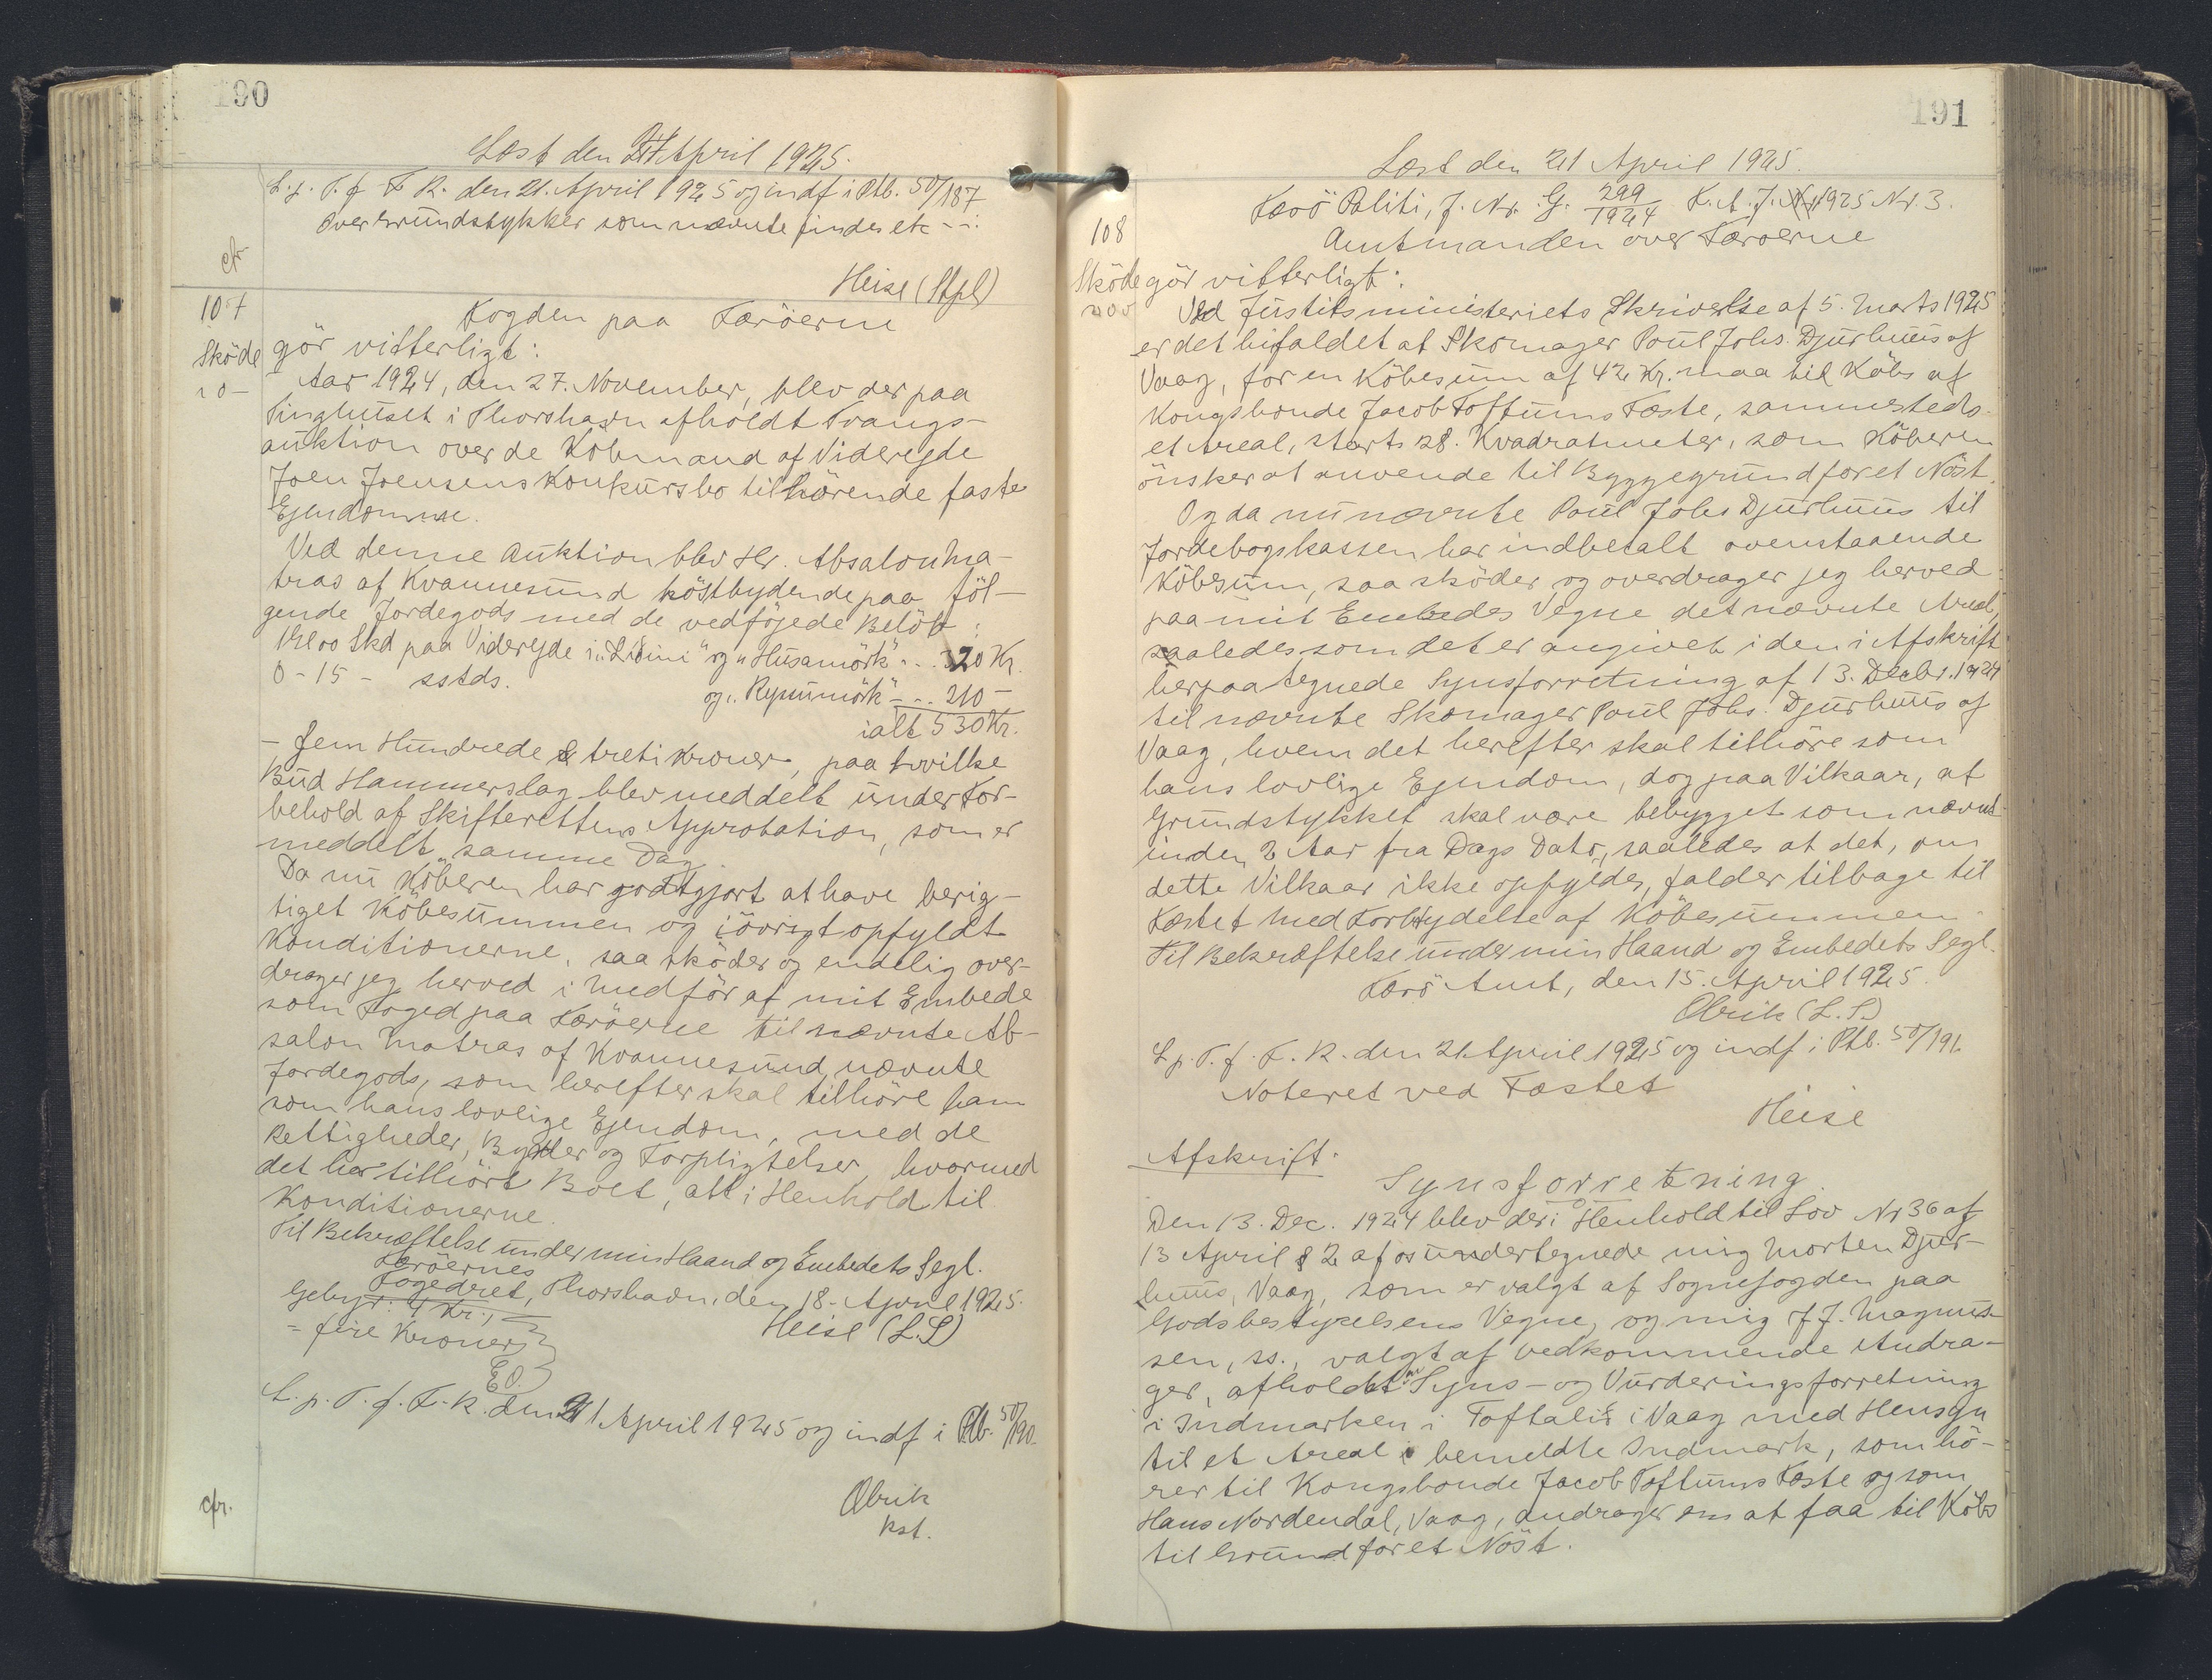 190
Læst den 21 April 1925.
L. p. T. f. F. R. den 21. April 1925 og indf i Ptb. 50/187
Over Grundstykker som nævnte findes etc - -:
cfr
Heise (Stpl)
107
Fogden paa Færöerne
Sköde
gör vitterligt:
10 -
Aar 1924, den 27. November, blev der paa
Tinghuset i Thorshavn afholdt Tvangs-
auktion over de Købmand af Viderejde
Joen Joensens Konkursbo tilhörende faste
Ejendomme.
Ved denne Auktion blev Hr. Absalon Ma-
tras af Kvannesund höstbydende paa föl-
gende Jordegods med de vedföjede Belöb:
Skd paa Viderejde i og "Husamörk" . . . 320 Kr.
0 - 15 - sstds.
og 210 -
ialt 530 Kr.
- fem Hundrede & treti Kroner, paa hvilke
Bud Hammerslag blev meddelt under For-
behold af Skifterettens Approbation, som er
meddelt samme Dag.
Da nu Köberen har godtgjort at have berig-
tiget Köbesummen og iövrigt opfyldt
Konditionerne, saa sköder og endelig over-
drager jeg herved i Medför af mit Embede
som Foged paa Færöerne til nævnte Ab-
salon Matras af Kvannesund, nævnte
Jordegods, som herefter skal tilhöre ham
som hans lovlige Ejendom, med de
Rettigheder, Byrder og Forpligtelser, hvormed
det har tilhört Boet, alt i Henhold til
Konditionerne.
Til Bekræftelse under min Haand og Embedets Segl.
Færöernes
Fogedret, Thorshavn, den 18. April 1925.
Gebyr: 4 Kr.,
Heise (L.S)
= fire Kroner
EO.
L. p. T. f. F. R. den 21 April 1925 og indf i Ptb. 50/190.
cfr.
Olrik
kst.
191
Læst den 21 April 1925.
Færö Politi, J. Nr. G. 299/1924 K. A. J. 1925 Nr. 3.
108
Amtmanden over Færoerne
Sköde
gör vitterligt:
Ved Justitsministeriets Skrivelse af 5. Marts 1925
er det bifaldet at Skomager Poul Johs. Djurhuus af
Vaag, for en Köbesum af 42 Kr. maa til Köbs af
Kongsbonde Jacob Toftums Fæste, sammesteds
et Areal, stort 28. Kvadratmeter, som Köberen
önsker at anvende til Byggegrund for et Nöst.
Og da nu nævnte Poul Johs Djurhuus til
Jordebogskassen har indbetalt ovenstaaende
Köbesum, saa sköder og overdrager jeg herved
paa mit Embedes Vegne det nævnte Areal,
saaledes som det er angivet i den i Afskrift
herpaategnede Synsforretning af 13. Decbr. 1924
til nævnte Skomager Poul Johs. Djurhuus af
Vaag, hvem det herefter skal tilhöre som
hans lovlige Ejendom, dog paa Vilkaar, at
Grundstykket skal være bebygget som nævnt
inden 2 Aar fra Dags Dato, saaledes at det, om
dette Vilkaar ikke opfyldes, falder tilbage til
Fæstet med Forbrydelse af Köbesummen.
Til Bekræftelse under min Haand og Embedets Segl.
Færö Amt, den 15. April 1925.
Olrik (L.S.)
L p. T. f. F. R. den 21 April 1925 og indf i Ptb. 50/191.
Noteret ved Fæstet
Heise
Afskrift.
Synsforretning.
Den 13. Dec. 1924 blev der i Henhold til Lov Nr 36 af
13 April § 2 af os undertegnede mig Morten Djur-
huus, Vaag, som er valgt af Sognefogden paa
Godsbestyrelsens Vegne, og mig J J. Magnus-
sen, ss., valgt af vedkommende Andra-
ger, afholdt en Syns- og Vurderingsforretning
i Indmarken i i Vaag med Hensyn
til et Areal i bemeldte Indmark, som hö-
rer til Kongsbonde Jacob Toftums Fæste og som
Hans Nordendal, Vaag, andrager om at faa til Köbs
til Grund for et Nöst.